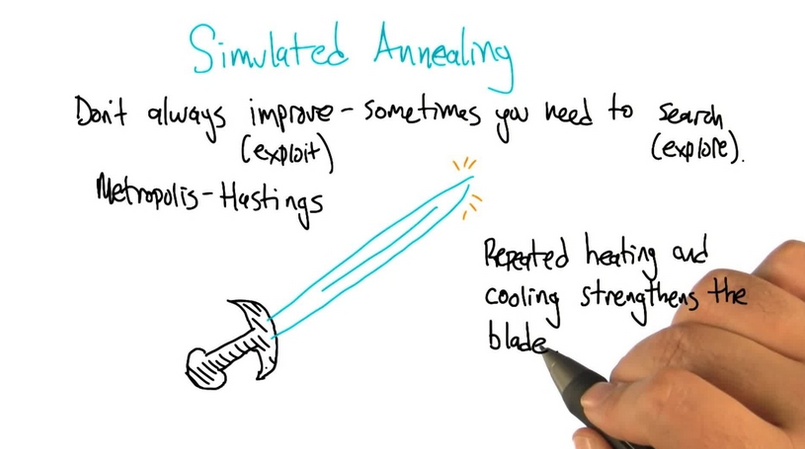 Simulated Annealing
Don't always improve - sometimes you need to search
(exploit)
(explore).
Metropolis-Hastings
Repeated heating and
cooling strengthens the
blade.